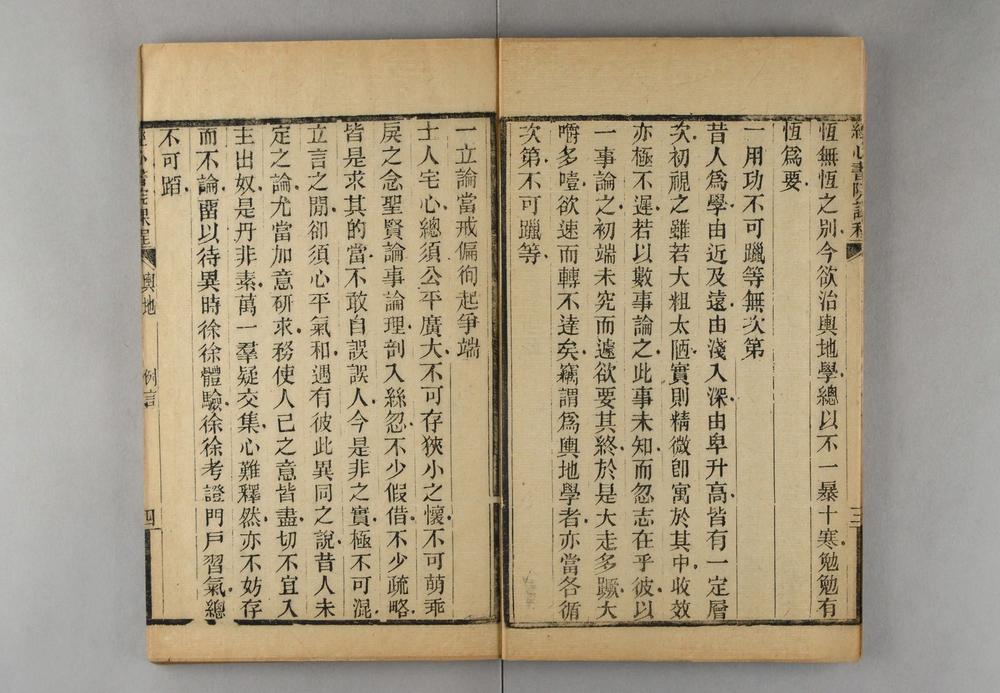 經心書院課程
三
恆無恆之別今欲治輿地學總以不一暴十寒勉勉有
恆爲要
一用功不可躐等無次第
昔人爲學由近及遠由淺入深由卑升高皆有一定層
次初視之雖若大粗太陋實則精微卽寓於其中收效
亦極不遲若以數事論之此事未知而忽志在乎彼以
一事論之初端未究而遽欲要其終於是大走多蹶大
嚼多噎欲速而轉不達矣竊謂爲輿地學者亦當各循
次第不可躐等
一立論當戒偏徇起爭端
士人宅心總須公平廣大不可存狹小之懷不可萌乖
戾之念聖賢論事論理剖入絲忽不少假借不少疏略
皆是求其的當不敢自誤誤人今是非之實極不可混
立言之閒卻須心平氣和遇有彼此異同之說昔人未
定之論尤當加意研求務使人己之意皆盡切不宜入
主出奴是丹非素萬一羣疑交集心難釋然亦不妨存
而不論畱以待異時徐徐體驗徐徐考證門戶習氣總
不可蹈
經心書院課程
輿地
例言
四